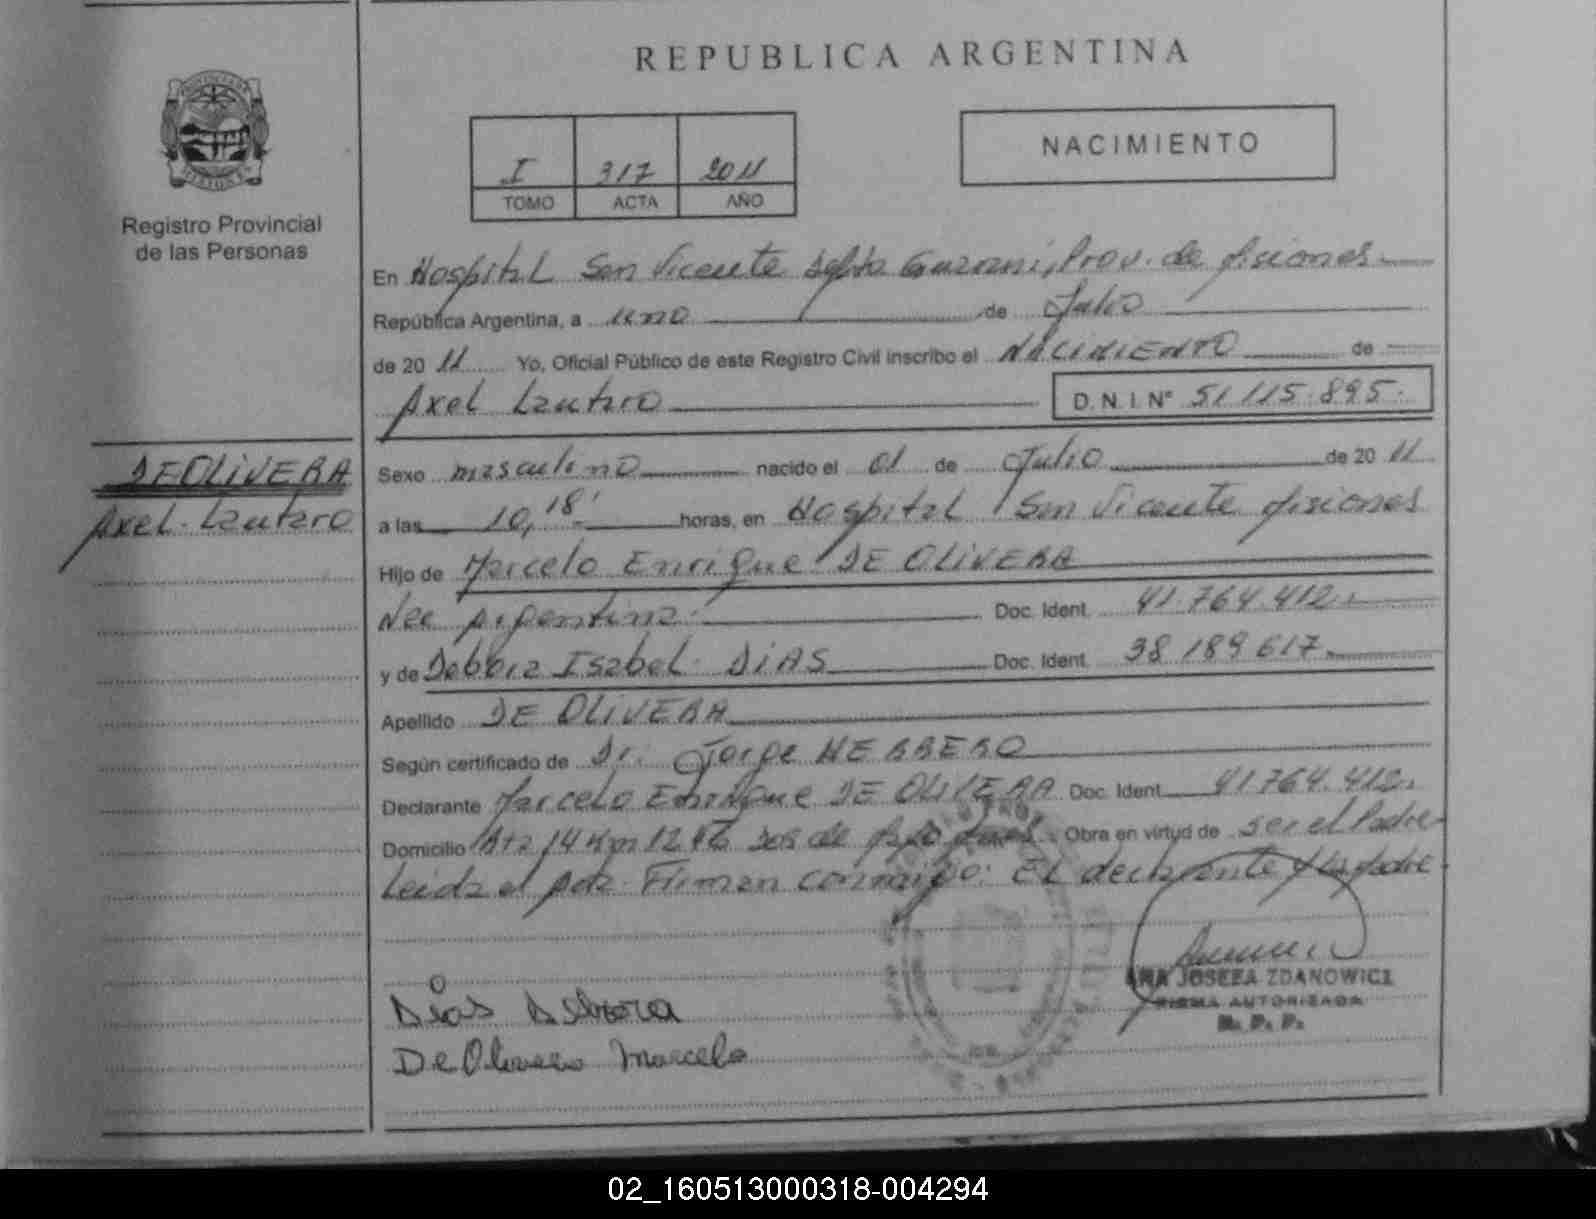 REPUBLICA ARGENTINA
PROVINCIA DE MISIONES
Registro Provincial
de las Personas
I 317 2011
TOMO ACTA AÑO
NACIMIENTO
En Hospital San Vicente Dpto Guarani, Prov. de Misiones
República Argentina, a uno de Julio
de 2011 Yo, Oficial Público de este Registro Civil inscribo el NACIMIENTO de
Axel Lautaro D.N.I. Nº 51.115.895.
DEOLIVERA
Axel Lautaro
Sexo masculino nacido el 01 de Julio de 2011
a las 10,18 horas, en Hospital San Vicente Misiones
Hijo de Marcelo Enrique DE OLIVERA
Nac Argentina Doc. Ident. 41.764.412.
y de Debora Isabel DIAS Doc. Ident. 38 189 617
Apellido DE OLIVERA
Según certificado de Dr. Jorge HERRERO
Declarante Marcelo Enrique DE OLIVERA Doc. Ident. 41.764.412.
Domicilio Rta 14 Km 12 de Obra en virtud de ser el Padre
Leida el Acta Firman conmigo: El declarante y la Madre
Dias Debora
De Olivera Marcelo
ANA JOSEFA ZDANOWICZ
FIRMA AUTORIZADA
R. P. P.
02_160513000318-004294